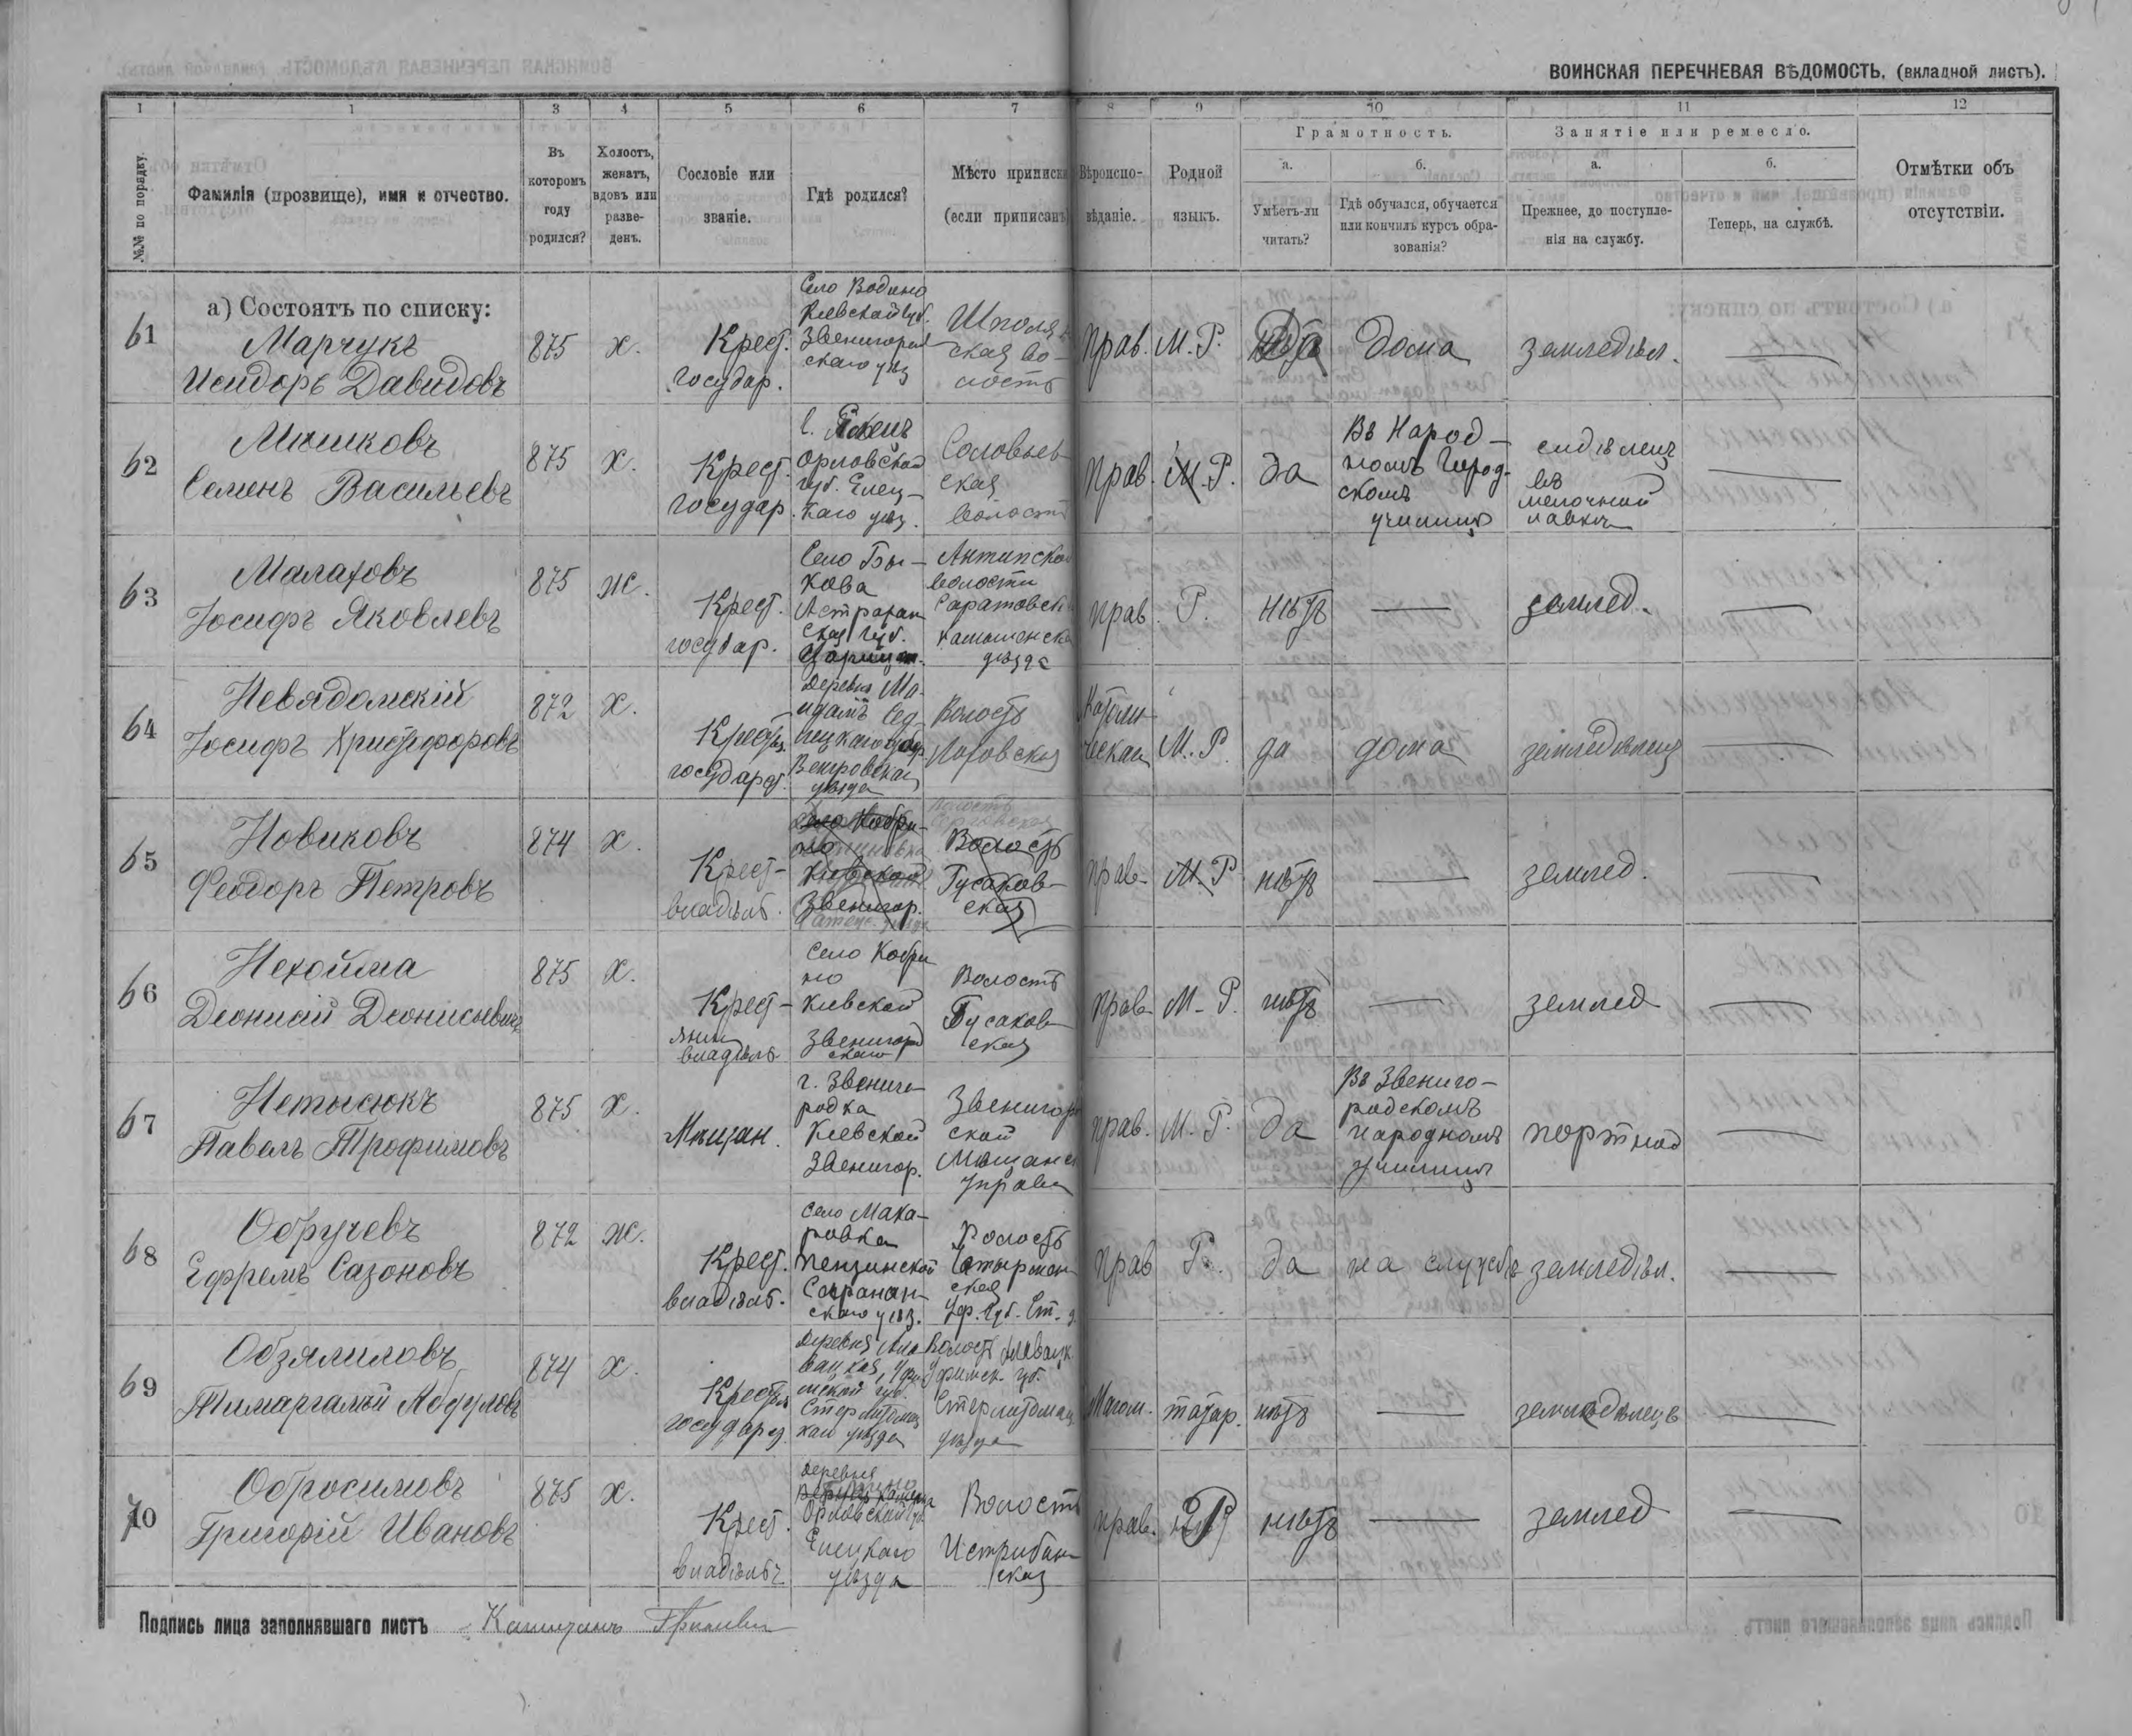 ВОИНСКАЯ ПЕРЕЧНЕВАЯ ВѢДОМОСТЬ. (вкладной листъ).
1 1 3 4 5 6 7 8 9 10 11 12
№№ по порядку.
Фамилія (прозвище), имя и отчество.
Въ которомъ году родился?
Холостъ, женатъ, вдовъ или разведенъ.
Сословіе или званіе.
Гдѣ родился?
Мѣсто приписки (если приписанъ)
Вѣроисповѣданіе.
Родной языкъ.
Грамотность.
а.
Умѣетъ-ли читать?
б.
Гдѣ обучался, обучается или кончилъ курсъ образованія?
Занятіе или ремесло.
а.
Прежнее, до поступленія на службу.
б.
Теперь, на службѣ.
Отмѣтки объ отсутствіи.
а) Состоятъ по списку:
61
Марчукъ
Исидоръ Давидовъ
875
х.
Крест.
государ.
Село Водяно
Кіевской губ.
Звенигород
скаго уѣз
Шполян
ская Во-
лость
Прав.
М. Р.
Да
Дома
земледѣл.
62
Мишковъ
Семенъ Васильевъ
875
х.
Крест.
государ.
Орловской
губ. Елец-
каго уѣз.
Соловьев
ская
волость
Прав.
М. Р.
да
Въ Народ-
номъ Город-
скомъ
училищѣ
сидѣлецъ
въ
мелочной
лавкѣ
63
Малаховъ
Іосифъ Яковлевъ
875
ж.
Крест.
государ.
Село Бы-
кова
Астрахан
ская губ.
Антипской
волости
Саратовск
камышенска
уѣзда
прав.
Р.
нѣтъ
землед.
64
Невядомскій
Іосифъ Христофоровъ
872
х.
Крестья
государст.
Деревня
Сед
лецкаго губер
Венгровскаго
уѣзда
Волость
Лоховская
Католи-
ческая
М. Р.
да
дома
земледѣлецъ
65
Новиковъ
Феодоръ Петровъ
874
х.
Крест-
владѣлъ.
Село Кобри-
но
Кіевской
Звенигор.
Волость
Гусаков-
ская
прав-
М. Р
нѣтъ
землед.
66
Нехойма
Діонисій Діонисьевичъ
875
х.
Крест-
янин
владѣлъ
Село Кобри
но
Кіевской
Звенигород
скаго
Волость
Гусаков
ская
прав
М-Р.
нѣтъ
землед
67
Нетысюкъ
Павелъ Трофимовъ
875
х.
Мѣщан.
г. Звениго
родка
Кіевской
Звенигор.
Звенигород
ской
Мѣщанск
управы
прав.
М. Р.
Да
Въ Звениго-
родскомъ
народномъ
училищѣ
портной
68
Обручевъ
Ефремъ Сазоновъ
872
ж.
Крест.
владѣлъ.
Село Мака-
ровка
Пензинской
Саранан-
скаго уѣз.
Волость
ская
Уф. губ. Ст.
прав
Р.
да
на службѣ
земледѣл.
69
Обзялиловъ
Тимаргалій Абдуловъ
874
х.
Крестья
государст
Деревня
Стерлитомац
каго уѣзда
Волость
Уфимск. губ.
Стерлитомац
уѣзда
Магом.
татар.
нѣтъ
земледѣлецъ
70
Обросимовъ
Григорій Ивановъ
875
х.
Крест.
владѣлъ
Деревня
Орловской губ
Елецкаго
уѣзда
Волость
ская
прав.
Р
нѣтъ
землед
Подпись лица заполнявшаго листъ Капитанъ